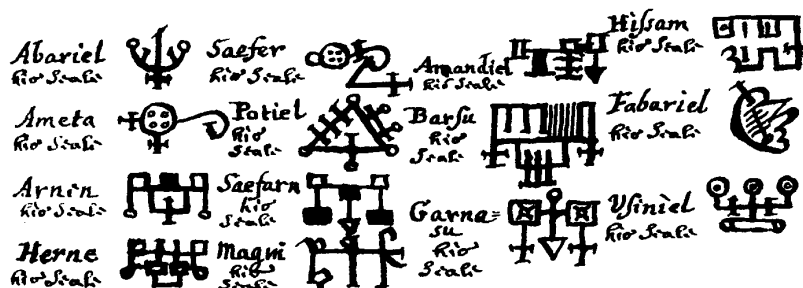 Abariel
his Seale
Ameta
his Seale
Arnen
his Seale
Herne
his Seale
Saefer
his Seale
Potiel
his
Seale
Saefarn
his
Seale
Maqui
his
Seale
Amandiel
his Seale
Barsu
his
Seale
Garna=
su
his
Seale
Hissam
his Seale
Fabariel
his Seale
Usiniel
his Seale